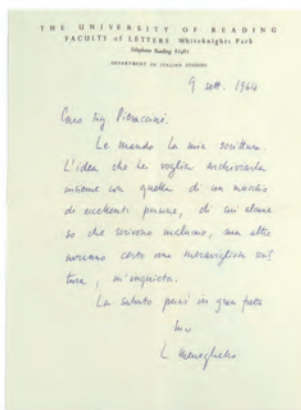 THE UNIVERSITY OF READING
FACULTY OF LETTERS Whiteknights Park
Telephone Reading 81481
DEPARTMENT OF ITALIAN STUDIES
9 sett. 1964
Caro Sig. Pieraccini.
Le mando la mia scrittura.
L'idea che Lei voglia archiviarla
insieme con quella di un mucchio
di eccellenti persone, di cui alcune
so che scrivono malissimo, ma altre
avranno certo una meravigliosa scrit-
tura, m'inquieta.
La saluto però in gran fretta
suo
L Meneghello